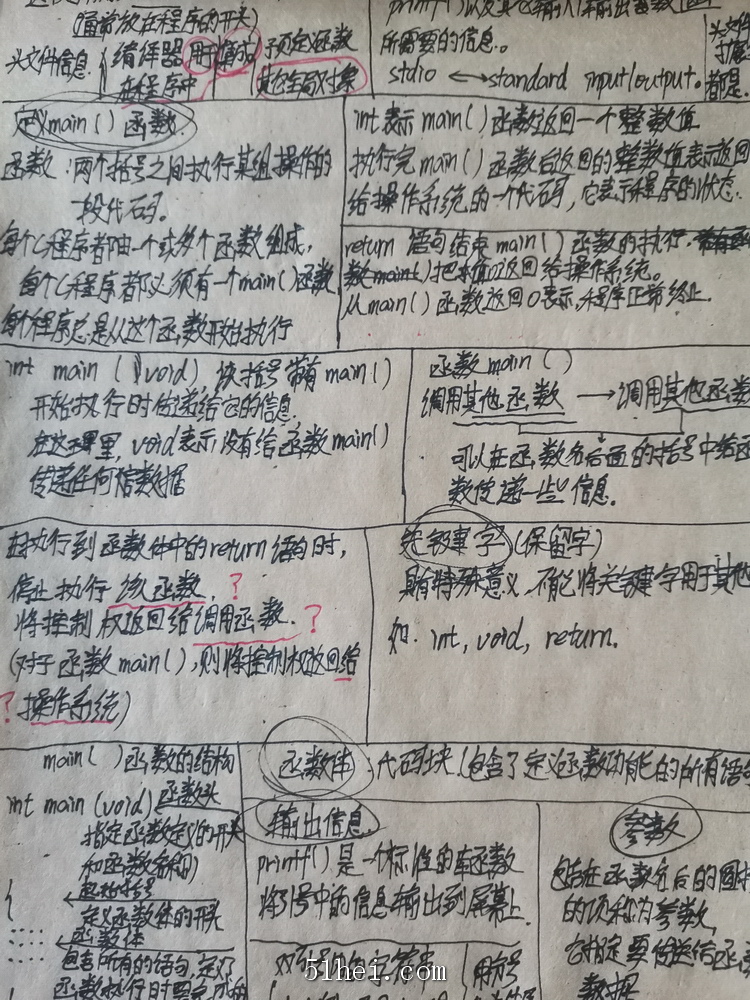 (通常放在程序的开头)
头文件信息
编译器用
于预定义函数
在程序中
所需要的信息。
stdio ⟷ standard input/output。
头文件
都是
定义main()函数.
函数:两个括号之间执行某组操作的
一段代码。
每个C程序都由一个或多个函数组成,
每个C程序都必须有一个main()函数
每个程序总是从这个函数开始执行
int表示main()函数返回一个整数值
执行完main()函数后返回的整数值表示返回
给操作系统的一个代码,它表示程序的状态.
return 语句结束main()函数的执行,
把值0返回给操作系统。
从main()函数返回0表示,程序正常终止.
int main (void),该括号带有main()
开始执行时传递给它的信息.
在这里,void表示没有给函数main()
传递任何数据
函数main()
调用其他函数 → 调用其他函数
可以在函数名后面的括号中给函
数传递一些信息.
在执行到函数体中的return语句时,
停止执行该函数.?
将控制权返回给调用函数.?
(对于函数main(),则将控制权返回给
?操作系统)
关键字(保留字)
具有特殊意义,不能将关键字用于其他
如. int, void, return.
main()函数的结构
int main (void) 函数头
指定函数定义的开头
和函数名称)
{
定义函数体的开头
函数体
包含所有的语句,定义
函数执行时要完成的
函数体:代码块.(包含了定义函数功能的所有语句
输出信息.
printf()是一个标准的库函数
将引号中的信息输出到屏幕上.
参数
包括在函数名后的圆括
的项称为参数,
它指定要传送给函
数据
51hei.com